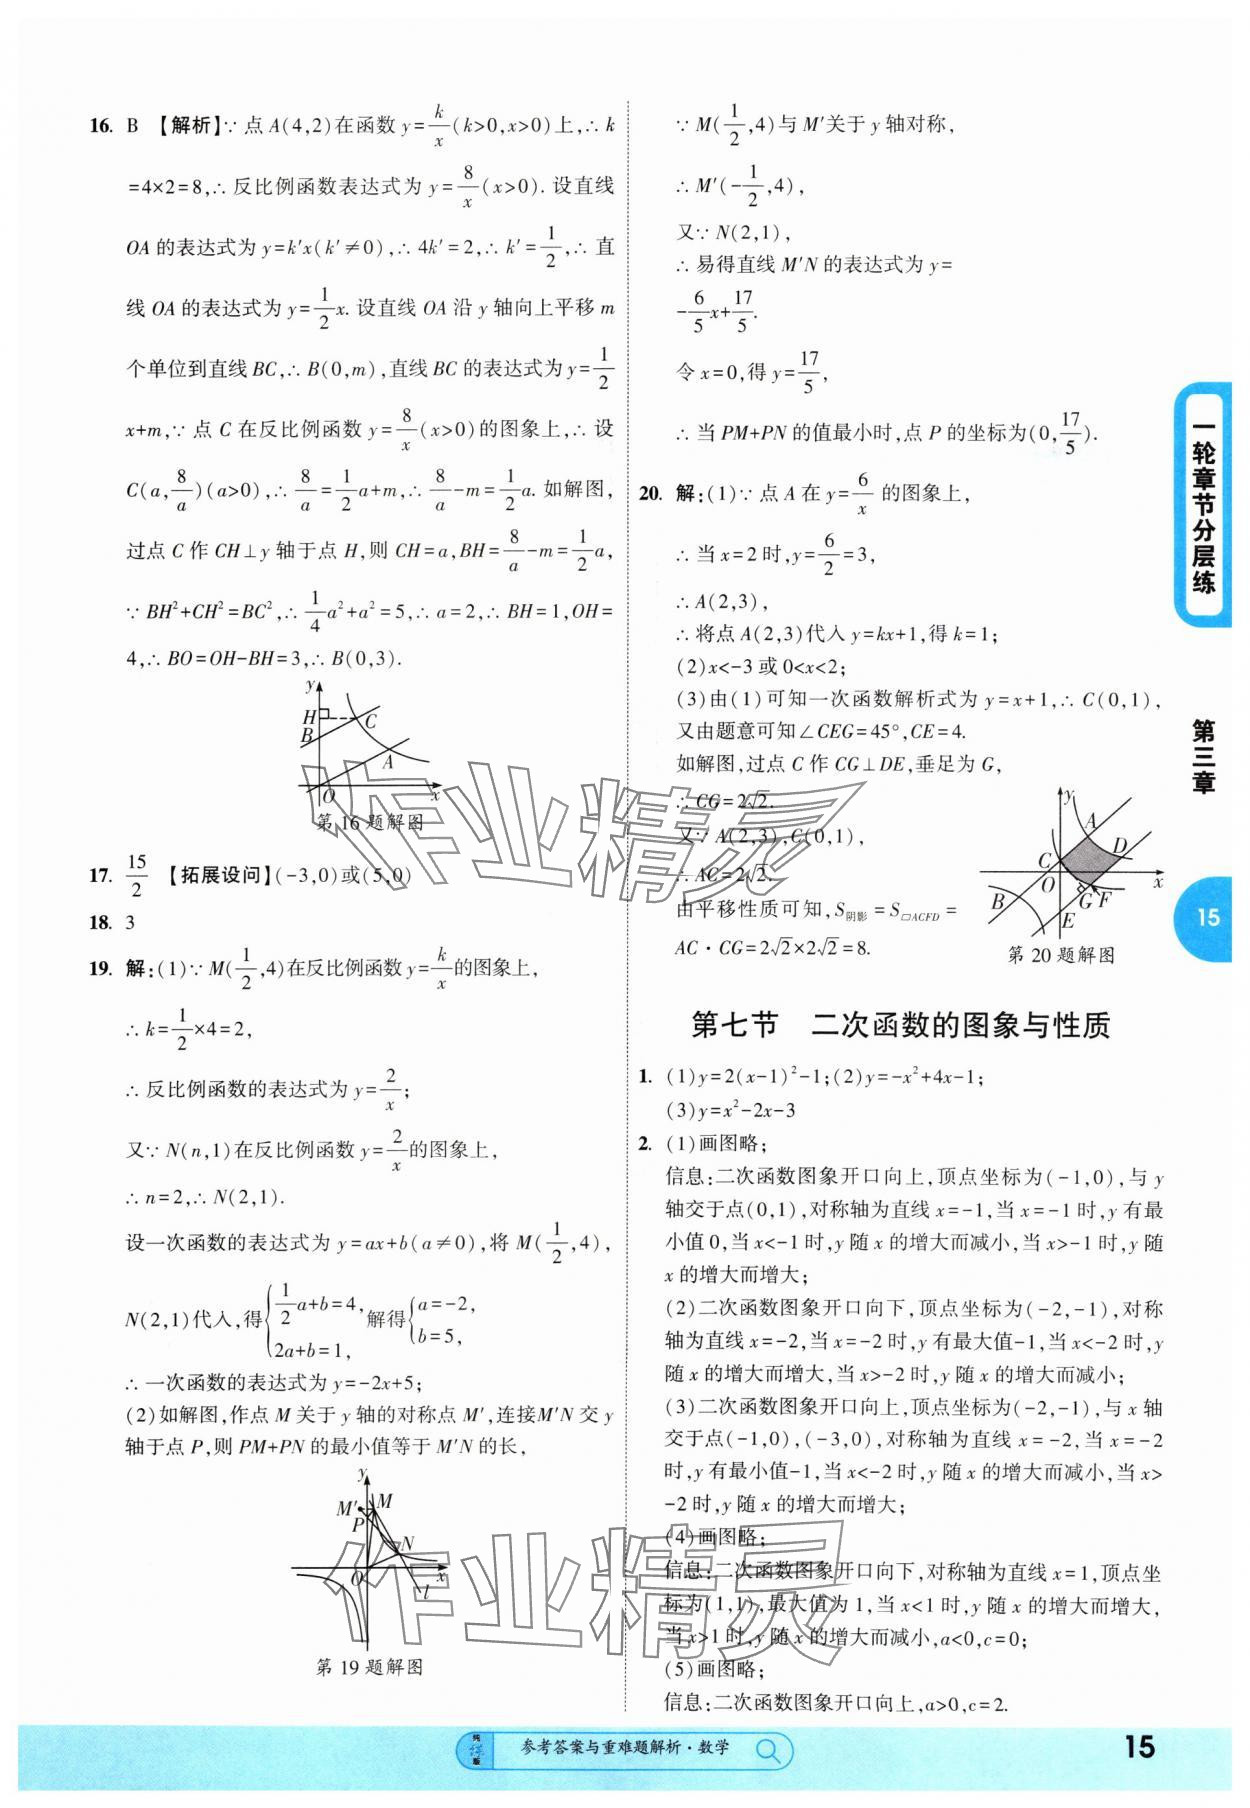 16. B 【解析】∵ 点 A(4,2)在函数 y=k/x(k>0,x>0)上,∴ k
=4×2=8,∴ 反比例函数表达式为 y=8/x(x>0). 设直线
OA 的表达式为 y=k′x(k′≠0),∴ 4k′=2,∴ k′=1/2,∴ 直
线 OA 的表达式为 y=1/2x. 设直线 OA 沿 y 轴向上平移 m
个单位到直线 BC,∴ B(0,m),直线 BC 的表达式为 y=1/2
x+m,∵ 点 C 在反比例函数 y=8/x(x>0)的图象上,∴ 设
C(a,8/a)(a>0),∴ 8/a=1/2a+m,∴ 8/a-m=1/2a. 如解图,
过点 C 作 CH⊥y 轴于点 H,则 CH=a,BH=8/a-m=1/2a,
∵ BH²+CH²=BC²,∴ 1/4a²+a²=5,∴ a=2,∴ BH=1,OH=
4,∴ BO=OH-BH=3,∴ B(0,3).
y
H
C
B
A
O
x
第 16 题解图
17. 15/2 【拓展设问】(-3,0)或(5,0)
18. 3
19. 解:(1)∵ M(1/2,4)在反比例函数 y=k/x的图象上,
∴ k=1/2×4=2,
∴ 反比例函数的表达式为 y=2/x;
又∵ N(n,1)在反比例函数 y=2/x的图象上,
∴ n=2,∴ N(2,1).
设一次函数的表达式为 y=ax+b(a≠0),将 M(1/2,4),
N(2,1)代入,得{1/2a+b=4, 2a+b=1, 解得{a=-2, b=5,
∴ 一次函数的表达式为 y=-2x+5;
(2)如解图,作点 M 关于 y 轴的对称点 M′,连接M′N 交 y
轴于点 P,则 PM+PN 的最小值等于 M′N 的长,
y
M′
M
P
N
O
x
l
第 19 题解图
∵ M(1/2,4)与 M′关于 y 轴对称,
∴ M′(-1/2,4),
又∵ N(2,1),
∴ 易得直线 M′N 的表达式为 y=
-6/5x+17/5.
令 x=0,得 y=17/5,
∴ 当 PM+PN 的值最小时,点 P 的坐标为(0,17/5).
20. 解:(1)∵ 点 A 在 y=6/x 的图象上,
∴ 当 x=2 时,y=6/2=3,
∴ A(2,3),
∴ 将点 A(2,3)代入 y=kx+1,得 k=1;
(2)x<-3 或 0<x<2;
(3)由(1)可知一次函数解析式为 y=x+1,∴ C(0,1),
又由题意可知∠CEG=45°,CE=4.
如解图,过点 C 作 CG⊥DE,垂足为 G,
∴ CG=2√2.
又∵ A(2,3),C(0,1),
∴ AC=2√2.
由平移性质可知,S阴影=S▱ACFD=
AC·CG=2√2×2√2=8.
y
A
C
D
O
x
B
G
F
E
第 20 题解图
第七节 二次函数的图象与性质
1. (1)y=2(x-1)²-1;(2)y=-x²+4x-1;
(3)y=x²-2x-3
2. (1)画图略;
信息:二次函数图象开口向上,顶点坐标为(-1,0),与 y
轴交于点(0,1),对称轴为直线 x=-1,当 x=-1 时,y 有最
小值 0,当 x<-1 时,y 随 x 的增大而减小,当 x>-1 时,y 随
x 的增大而增大;
(2)二次函数图象开口向下,顶点坐标为(-2,-1),对称
轴为直线 x=-2,当 x=-2 时,y 有最大值-1,当 x<-2 时,y
随 x 的增大而增大,当 x>-2 时,y 随 x 的增大而减小;
(3)二次函数图象开口向上,顶点坐标为(-2,-1),与 x 轴
交于点(-1,0),(-3,0),对称轴为直线 x=-2,当 x=-2
时,y 有最小值-1,当 x<-2 时,y 随 x 的增大而减小,当 x>
-2 时,y 随 x 的增大而增大;
(4)画图略;
信息:二次函数图象开口向下,对称轴为直线 x=1,顶点坐
标为(1,1),最大值为 1,当 x<1 时,y 随 x 的增大而增大,
当 x>1 时,y 随 x 的增大而减小,a<0,c=0;
(5)画图略;
信息:二次函数图象开口向上,a>0,c=2.
一轮章节分层练
第三章
15
作业精灵
作业精灵
参考答案与重难题解析·数学
15